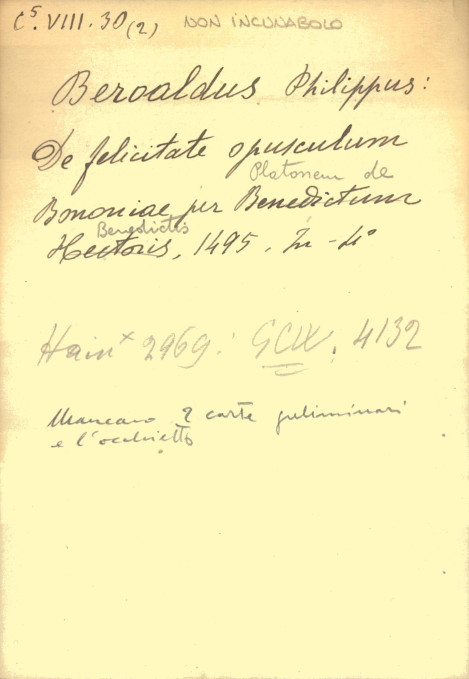 C⁵. VIII. 30 (2) NON INCUNABOLO
Beroaldus Philippus:
De felicitate opusculum
Platonem de
Bononiae per Benedictum
Benedictis
Hectoris, 1495. In-4°
Hain × 2969: GW. 4132
Mancano 2 carte preliminari
e l'occhietto